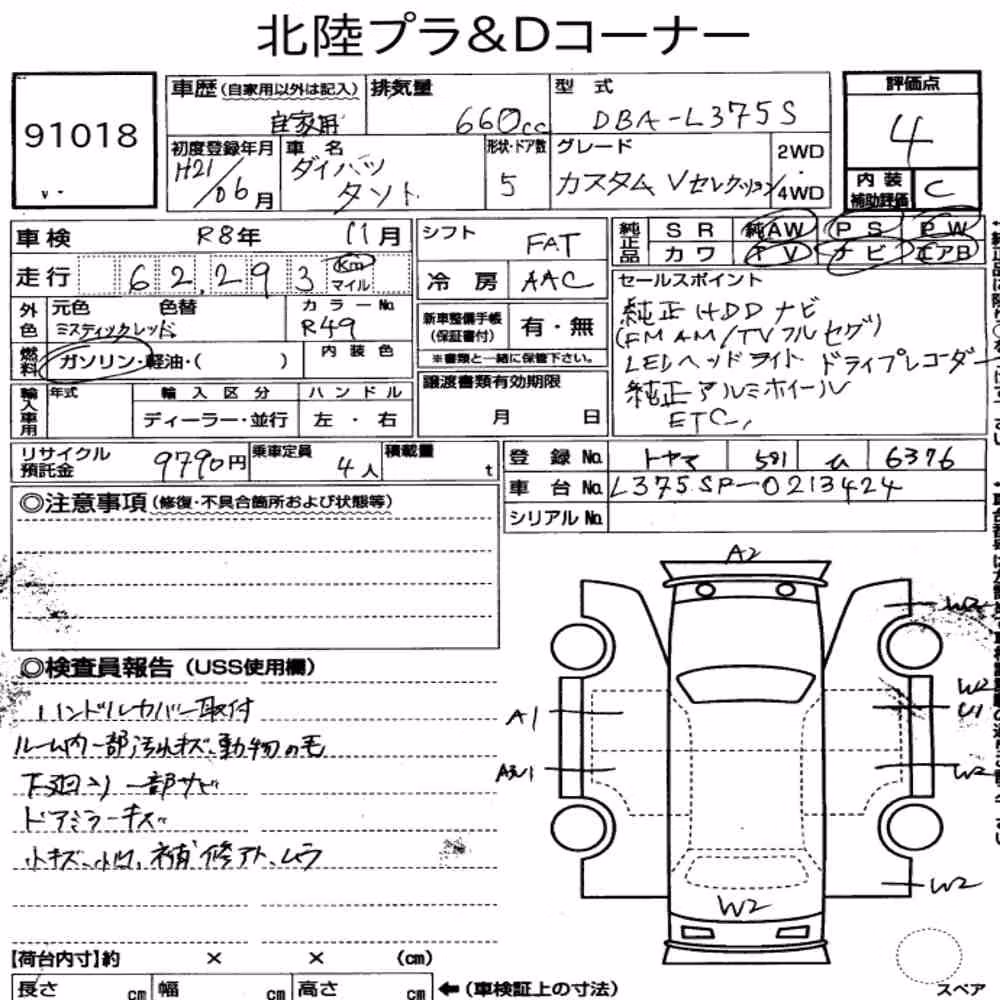 北陸プラ&Dコーナー
91018
車歴(自家用以外は記入) 自家用
排気量 660cc
型式 DBA-L375S
評価点 4
初度登録年月 H21/06月
車名 ダイハツ タント
形状・ドア数 5
グレード カスタム Vセレクション
2WD・4WD
内装補助評価 C
車検 R8年 11月
走行 62,293 Km マイル
外色 元色 ミスティックレッド 色替
カラーNo R49
燃料 ガソリン・軽油・( )
内装色
輸入車用 年式
輸入区分 ディーラー・並行
ハンドル 左・右
シフト FAT
冷房 AAC
新車整備手帳(保証書付) 有・無
※書類と一緒に保管下さい。
譲渡書類有効期限 月 日
純正品 SR 純AW PS PW
カワ TV ナビ エアB
セールスポイント
純正HDDナビ
(FMAM/TVフルセグ)
LEDヘッドライト ドライブレコーダー
純正アルミホイール
ETC,
リサイクル預託金 9790円
乗車定員 4人
積載量 t
登録No. トヤマ 581 ひ 6376
車台No. L375SP-0213424
シリアルNo.
◎注意事項(修復・不具合箇所および状態等)
◎検査員報告(USS使用欄)
ハンドルカバー取付
ルーム内一部汚れキズ、動物の毛
下廻り一部サビ
ドアミラーキズ
小キズ、小凹、補修アト、ムラ
A2
W2
A1
W2
U1
W2
W2
W2
【荷台内寸】約 × × (cm)
長さ cm 幅 cm 高さ cm
←(車検証上の寸法)
スペア